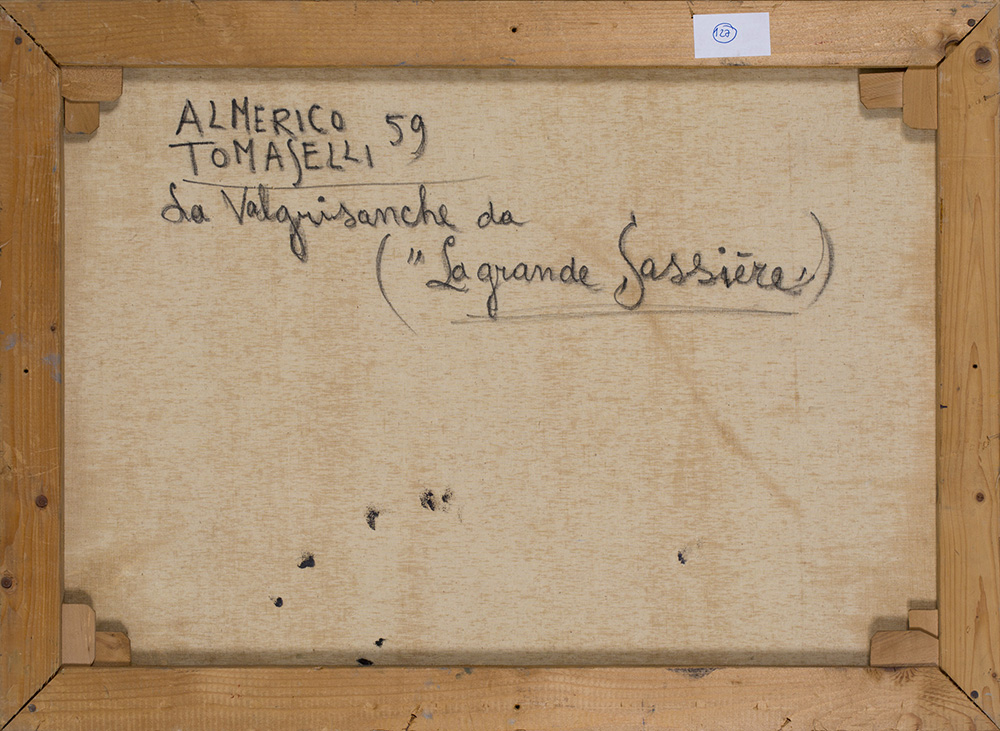 127
ALMERICO 59
TOMASELLI
La Valgrisanche da
("La grande Sassière")